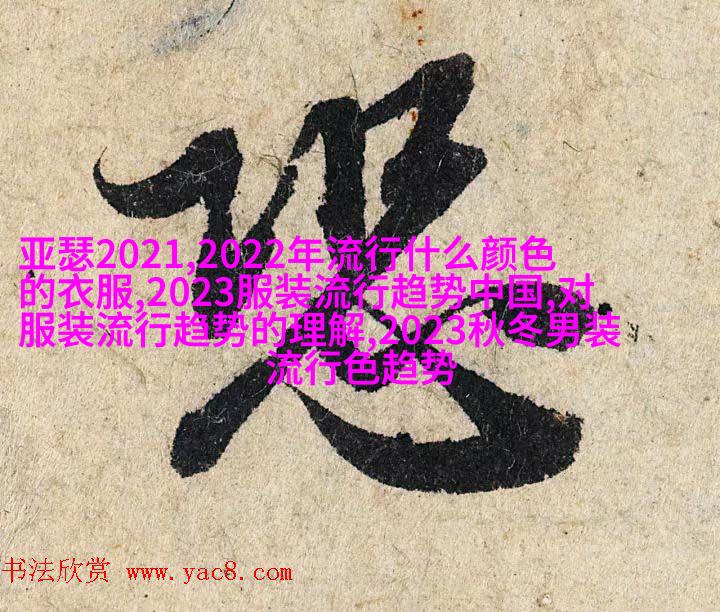 亚瑟2021,2022年流行什么颜色
的衣服,2023服装流行趋势中国,对
服装流行趋势的理解,2023秋冬男装
流行色趋势
书法欣赏 www.yac8.com